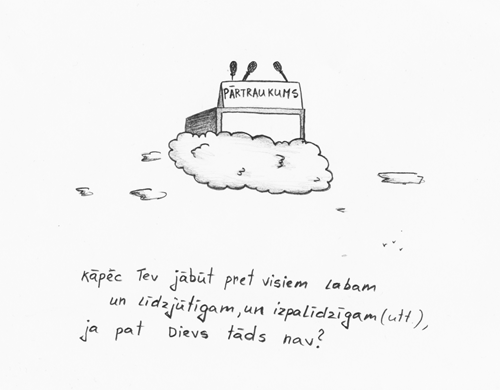 PĀRTRAUKUMS
Kāpēc Tev jābūt pret visiem labam
un līdzjūtīgam, un izpalīdzīgam (utt),
ja pat Dievs tāds nav?